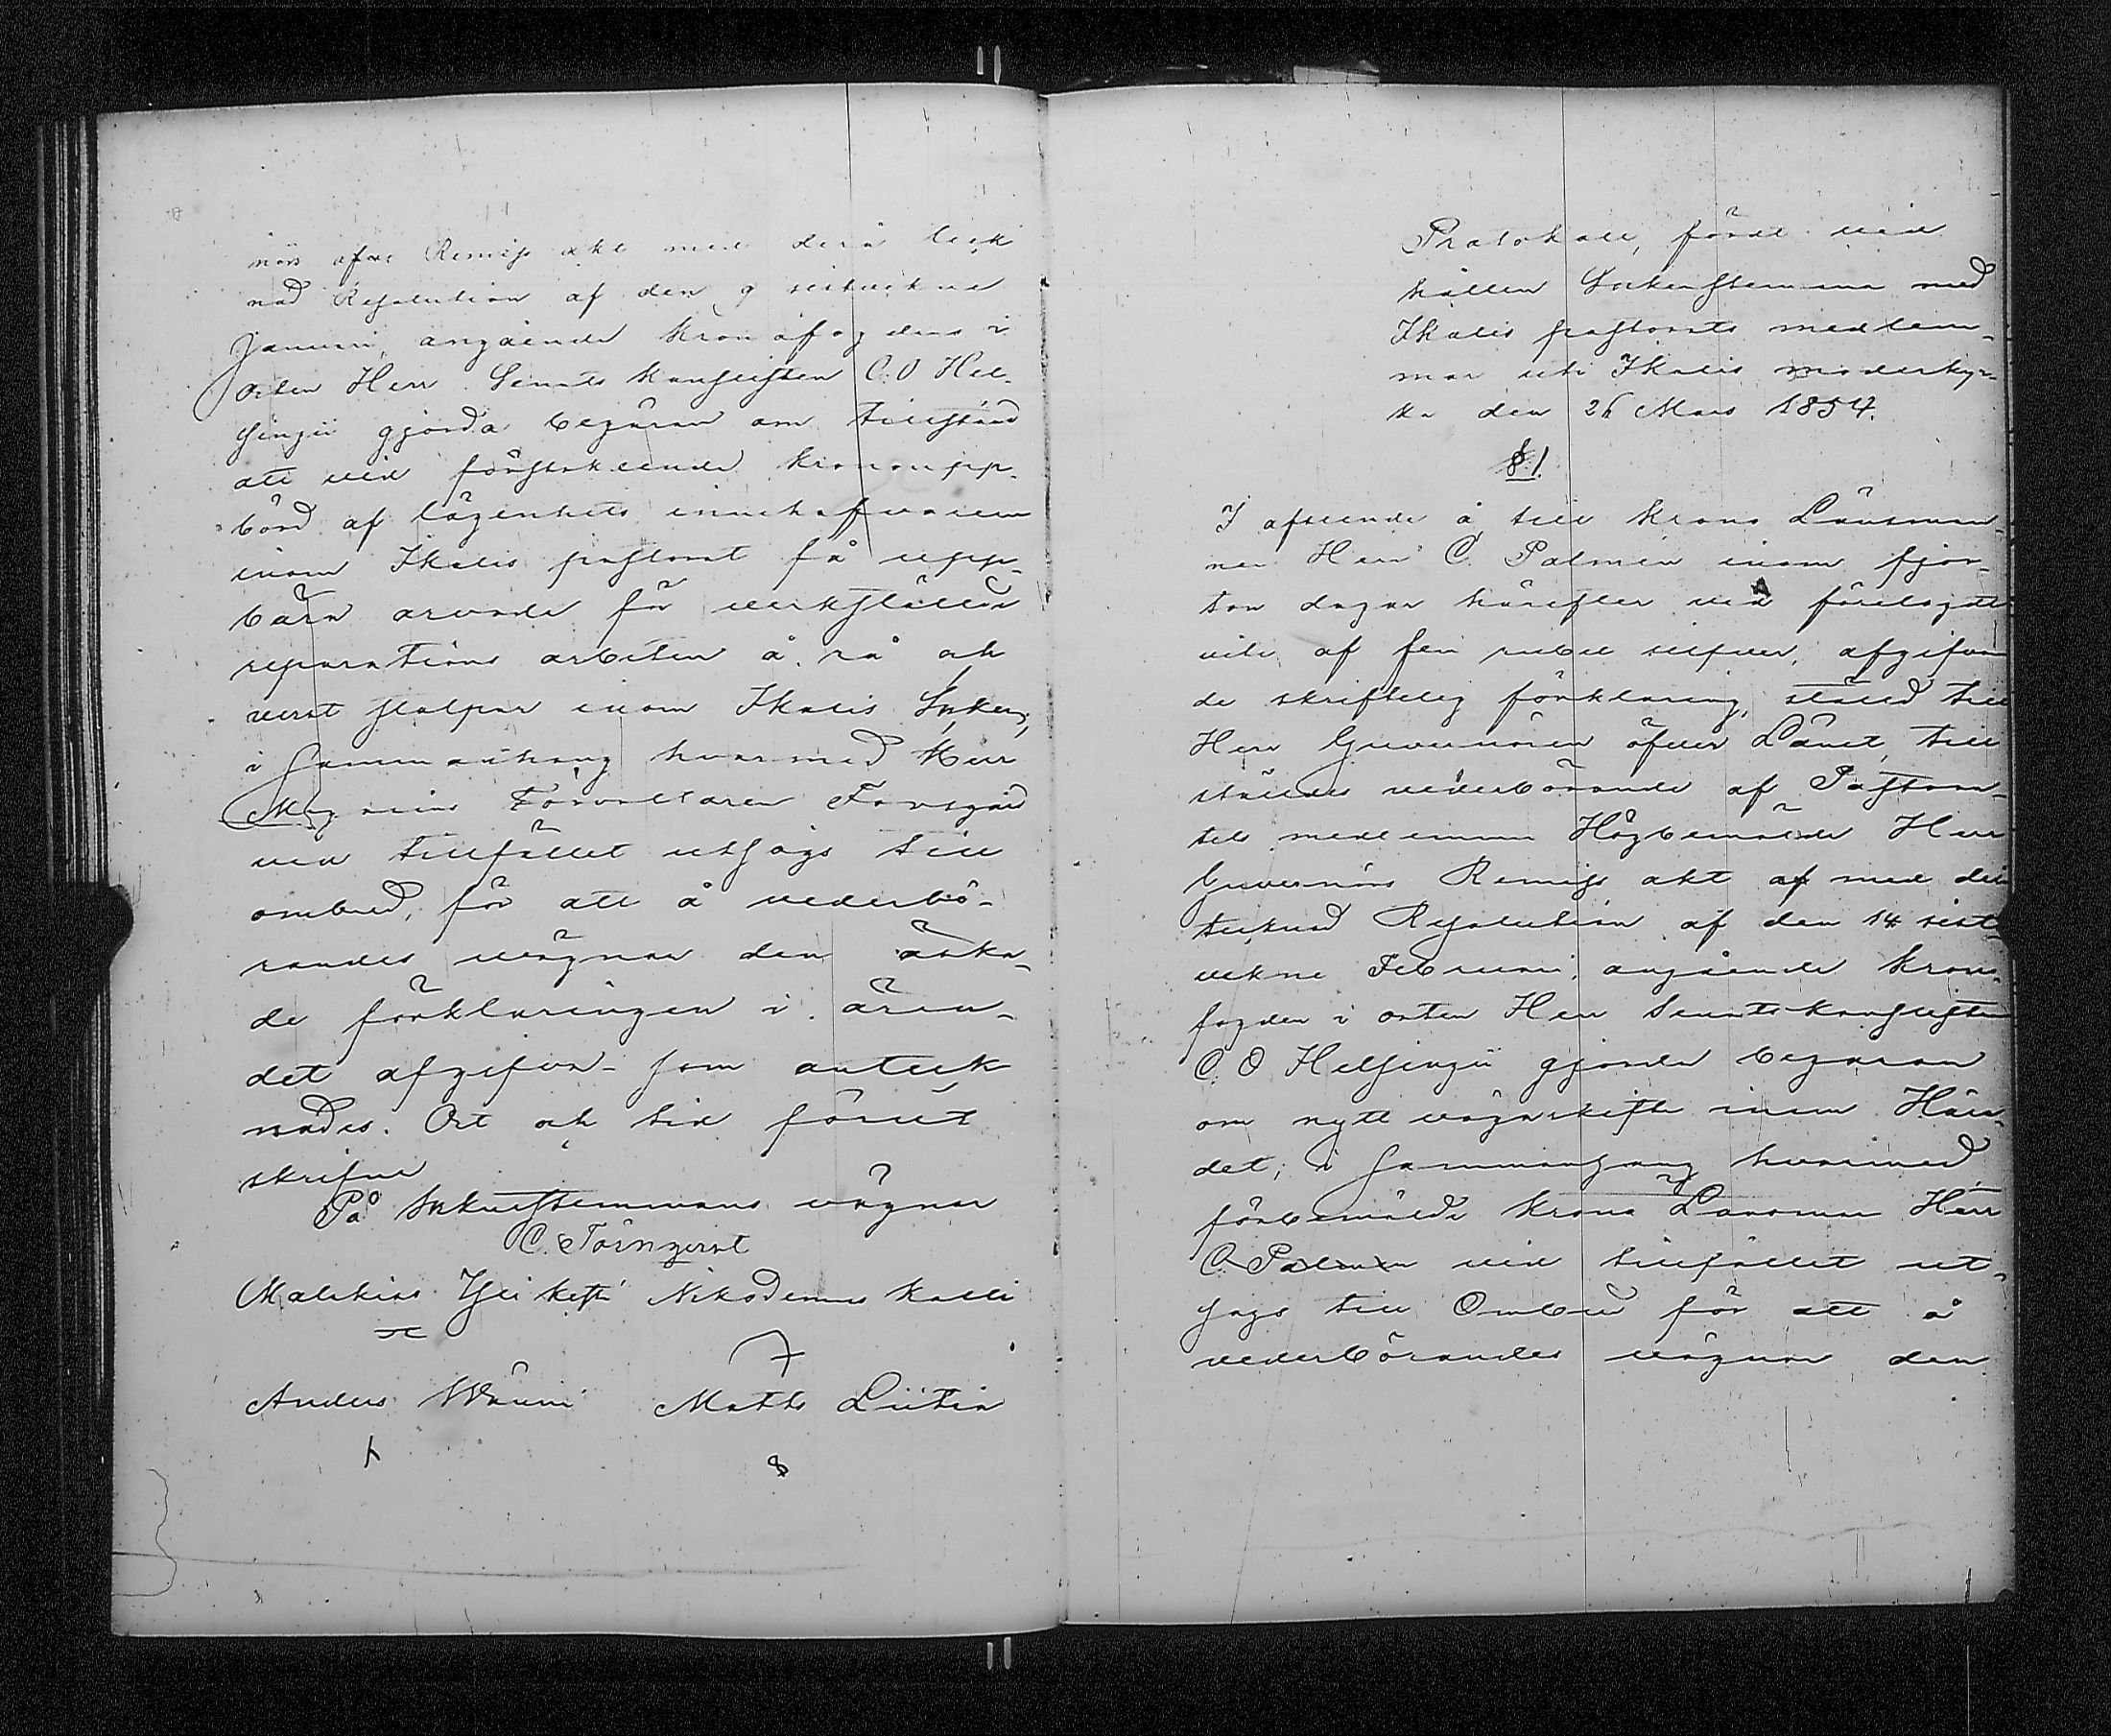 nörs ofvan Remiss akt med derå teck
nad Resolution af den 9 sistvekne
Januari, angående Kronofogdens i
orten Herr Senats kanslisten C. O Hel-
singii gjorda begäran om tillstånd
att vid förstakommande kronoupp-
börd af lägenhets innehafvarena
inom Ikalis pastorat få upp-
bära arvode för verkstälda
reparations arbeten å rå och
verst stolpar inom Ikalis Socken,
i sammanhang hvarmed Herr
Magasins Förvaltaren Forsgård
vid tillfället utsågs till
ombud, för att å vederbö-
randes vägnar den äska-
de förklaringen i ären-
det afgifva - som anteck
nades. Ort och tid förut
skrifne
På Sockenstemmans vägnar
C. Törnqvist
Mathias Yli kesti Nikodemus Kalli
Anders Wäini Matts Liitiä
Protokoll, fördt vid
hållen Sockenstemma med
Ikalis pastorats medlem-
mar uti Ikalis moderkyr-
ka den 26 Mars 1854.
§ 1.
I afseende å till Krono Länsman-
nen Herr C. Palmén inom fjor-
ton dagar härefter vid förelagdt
vite af fem rubel silfver, afgifvan
de skriftelig förklaring, stäld till
Herr Guvernören öfver Länet, till
stäldes vederbörande af Pastora-
tets medlemmar Högbemälde Herr
Guvernörs Remiss akt af med der
tecknad Resolution af den 14 sist-
vekne Februari, angående Krono
fogden i orten Herr Senatskanslisten
C. O Helsingii gjorda begäran
om nytt vägaskifte inom Hära-
det; i sammanhang hvarmed
förbemälde Krono Länsman Herr
C. Palmén vid tillfället ut-
sågs till Ombud för att å
vederbörandes vägnar den